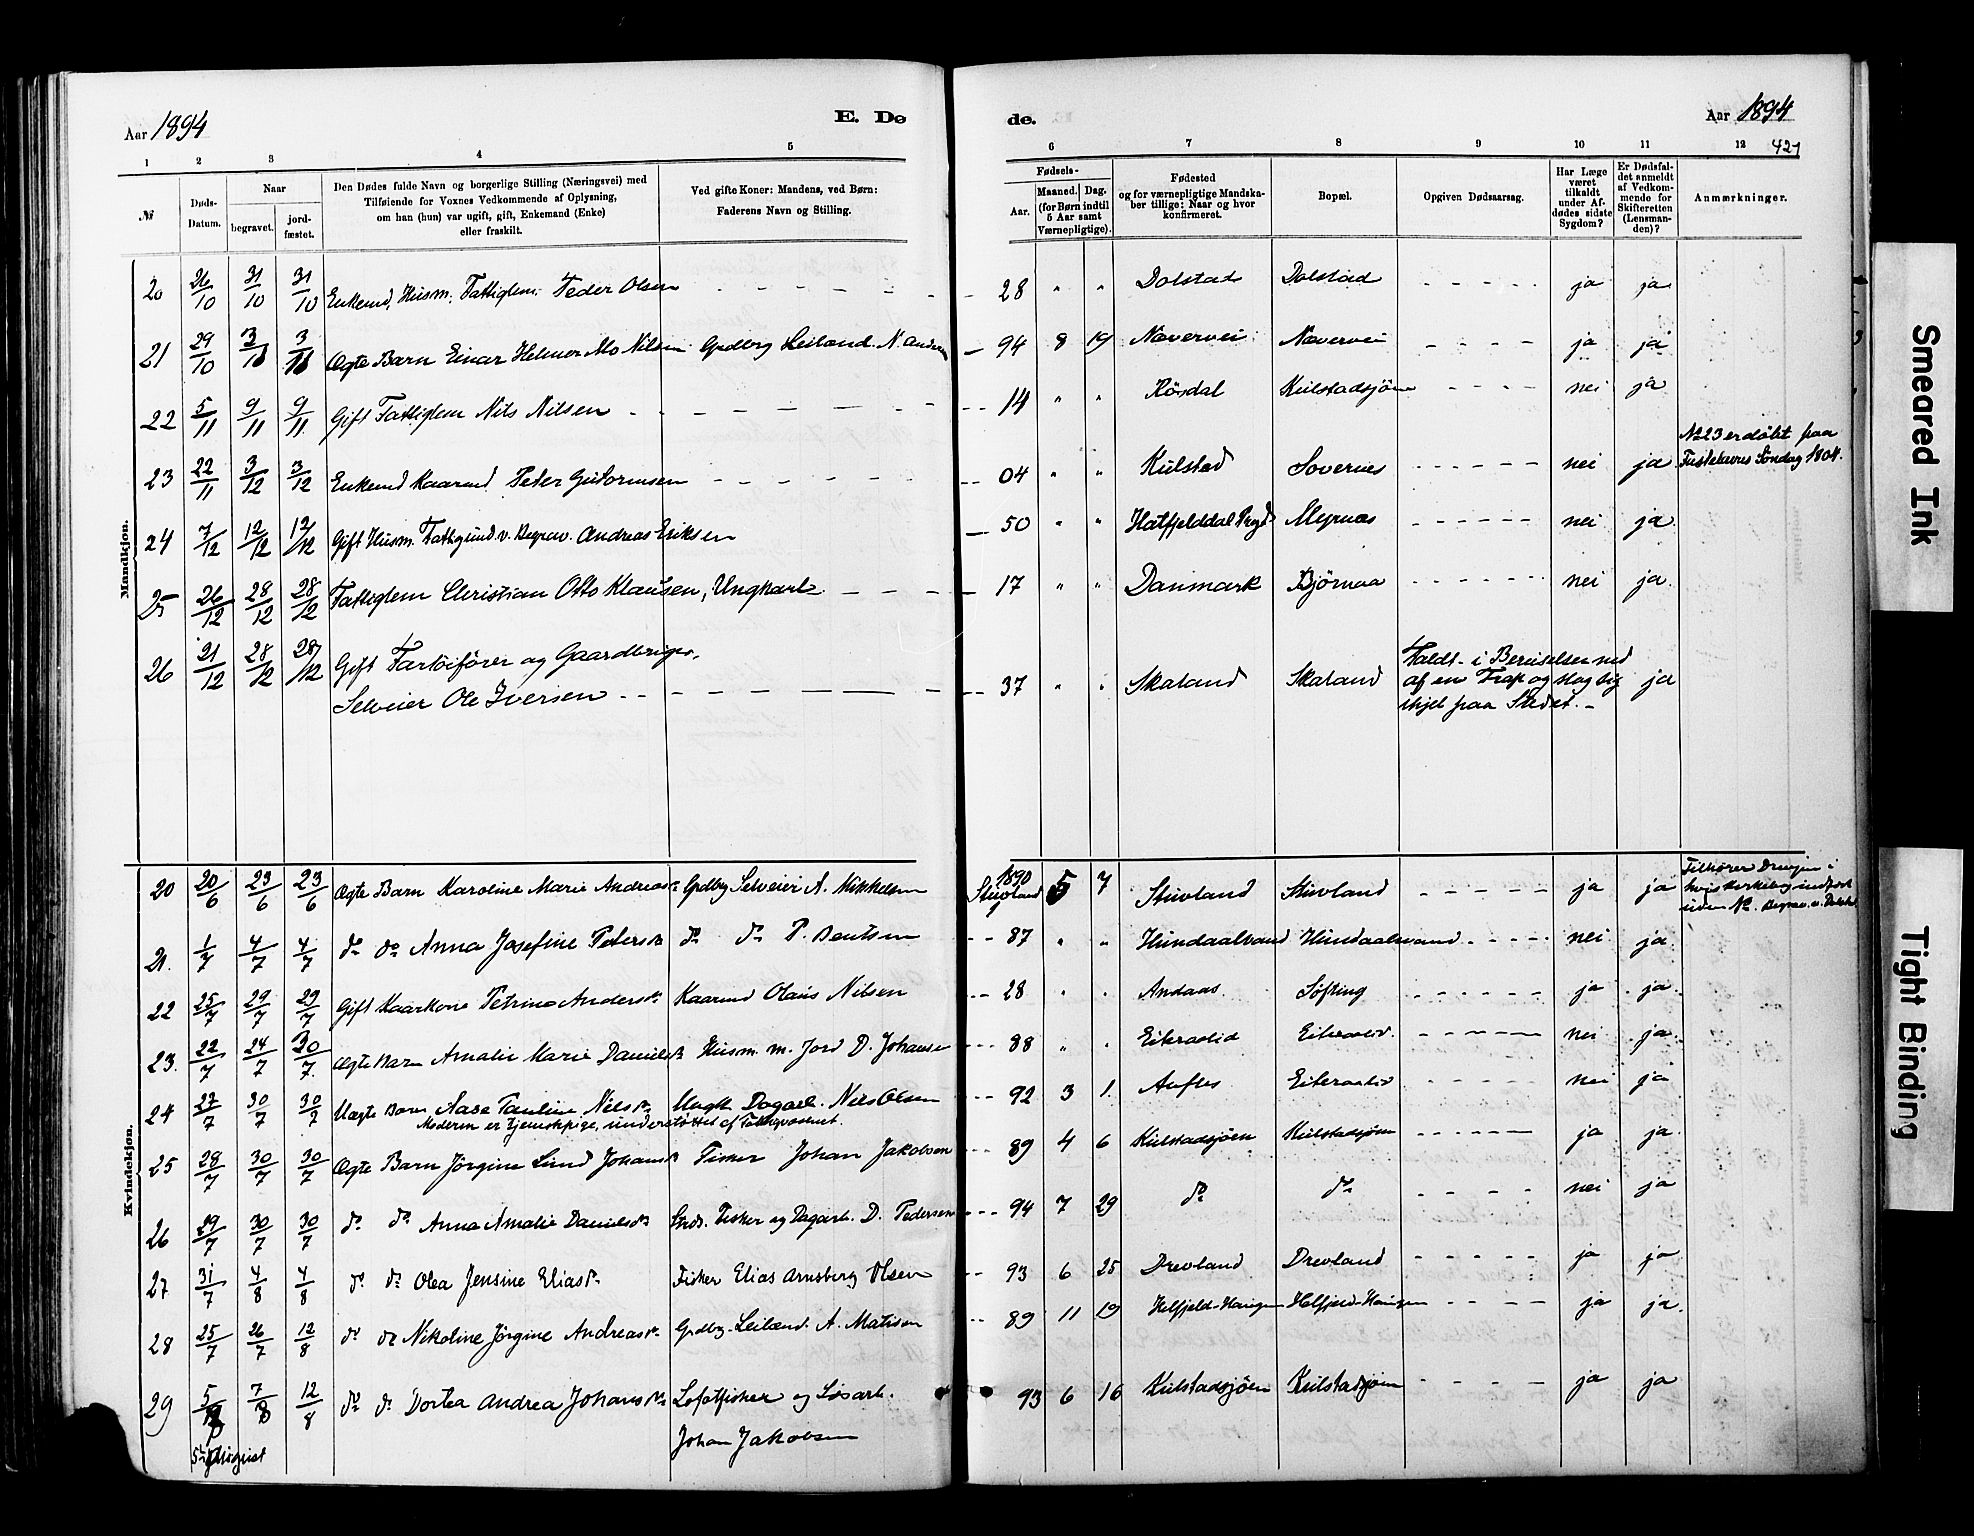 Aar 1894
E. Dø
de.
Aar 1894
421
1 2 3 4 5 6 7 8 9 10 11 12
№
Døds-Datum.
Naar
begravet.
jord-fæstet.
Den Dødes fulde Navn og borgerlige Stilling (Næringsvei) med
Tilføiende for Voxnes Vedkommende af Oplysning,
om han (hun) var ugift, gift, Enkemand (Enke)
eller fraskilt.
Ved gifte Koner: Mandens, ved Børn:
Faderens Navn og Stilling.
Fødsels-
Aar.
Maaned. Dag.
(for Børn indtil
5 Aar samt
Værnepligtige).
Fødested
og for værnepligtige Mandska-
ber tillige: Naar og hvor
konfirmeret.
Bopæl.
Opgiven Dødsaarsag.
Har Læge
været
tilkaldt
under Af-
dødes sidste
Sygdom?
Er Dødsfal-
det anmeldt
af Vedkom-
mende for
Skifteretten
(Lensman-
den)?
Anmærkninger.
Mandkjøn.
20 26/10 31/10 31/10 Enkemd, Husm. Fattiglem. Peder Olsen - - - 28 " " Dolstad Dolstad - - - ja ja
21 29/10 3/11 3/11 Ægte Barn Einar Helmer Mo Nilsen Grdbrg Leiland. N. Andersen 94 8 19 Næverves Næverves - - - ja ja
22 5/11 9/11 9/11 Gift Fattiglem Nils Nilsen - - - 14 " " Rösdal Kulstadsjöen - - - nei ja
№ 23 er döbt paa
23 22/11 3/12 3/12 Enkemd Kaarmd. Peter Guttormsen - - - 04 " " Kulstad Sovernes - - - nei ja Fastelavns Söndag 1804.
24 7/12 12/12 12/12 Gift Husm. Fattigund. v. Begrav. Andreas Eriksen 50 " " Hatfjelddal Prgd Myrnæs - - - nei ja
25 26/12 28/12 28/12 Fattiglem Christian Otto Klausen, Ungkarl - - - 17 " " Danmark Bjørnaa - - - nei ja
26 21/12 28/12 28/12 Gift Fartöifører og Gaardbruger,
Selveier Ole Iversen - - - 37 " " Skaland Skaland Faldt i Beruselse ned
af en Trap og slog sig
ihjel paa Stedet. - ja
Kvindekjøn.
20 20/6 23/6 23/6 Ægte Barn Karoline Marie Andreasd. Grdbrg Selveier A. Mikkelsen 1890 5 7 Stuvland Stuvland - - - ja ja Tilhører Drevjen i
hvis Kirkebog indført
uden №. Begrav. v. Dolstad
21. 1/7 4/7 4/7 do do Anna Josefine Petersd. do do P. Bentsen - - 87 " " Hundaalvand Hundaalvand - - - nei ja
22 25/7 29/7 29/7 Gift Kaarkone Petrine Andersd. Kaarmd Olaus Nilsen - - 28 " " Andaas Söfting - - - ja ja
23. 22/7 24/7 30/7 Ægte Barn Amalie Marie Danielsd. Husm. m. Jord D. Johansen - - 88 " " Eiteraalid Eiteraalid - - - nei ja
24 27/7 30/7 30/7 Uægte Barn Aasa Pauline Nilsd. Ungk. Dagarb. Nils Olsen - - 92 3 1. Aufles Eiteraalid - - - nei ja
Moderen er Tjenestepige, understøttet af Fattigvæsenet.
25 28/7 30/7 30/7 Ægte Barn Jörgine Lund Johansd. Fisker Johan Jakobsen - - 89 4 6 Kulstadsjöen Kulstadsjöen - - - ja ja
26 29/7 30/7 30/7 do do Anna Amalie Danielsd. Inds. Fisker og Dagarb. D. Pedersen - - 94 7 29 do do - - - nei ja
27 31/7 4/8 4/8 do do Olea Jensine Eliasd. Fisker Elias Arnsberg Olsen - - 93 6 25 Drevland Drevland - - - ja ja
28 25/7 26/7 12/8 do do Nikoline Jörgine Andreasd. Grdbr. Leilænd. A. Matisen - - 89 11 19 Helfjeld-Haugen Helfjeld-Haugen - - - ja ja
29 5/8 7/8 12/8 do do Dortea Andrea Johansd. Lofotfisker og Løsarb. 93 6 16 Kulstadsjöen Kulstadsjöen - - - ja ja
Johan Jakobsen
5te August
Smeared Ink
Tight Binding